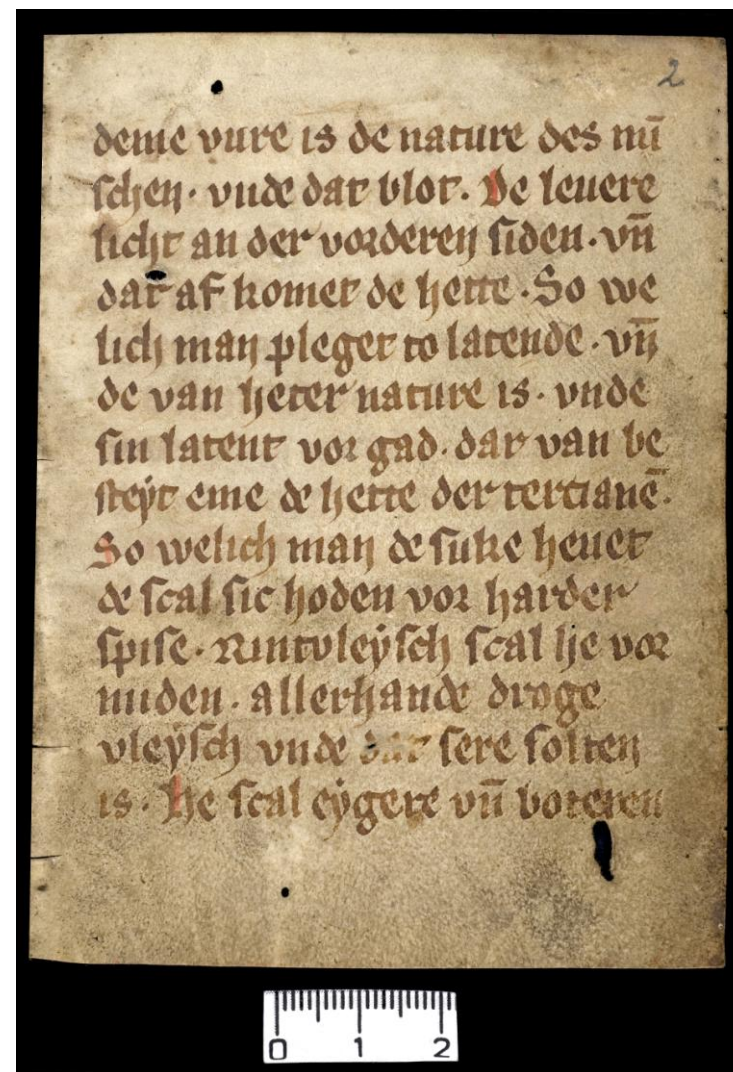 2
deme vure is de nature des mū
schen · vnde dat blot . De leuere
licht an der vorderen siden . vn̄
dar af komet de hette . So we
lich man pleget to latende . vn̄
de van heter nature is . vnde
sin latent vor gad . dar van be
steẏt eme de hette der tercianē .
So welich man de suke heuet
de scal sic hoden vor harder
spise . Rintvleẏsch scal he vor
miden . allerhande droge
vleẏsch vnde dat sere solten
is . He scal eẏgere vn̄ boteren
0 1 2